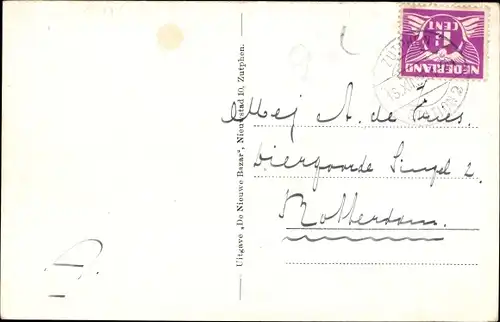 1½
CENT
NEDERLAND
Mej A. de Vries.
Diergaarde Singel 2.
Rotterdam.
Uitgave „De Nieuwe Bazar", Nieuwstad 10, Zutphen.